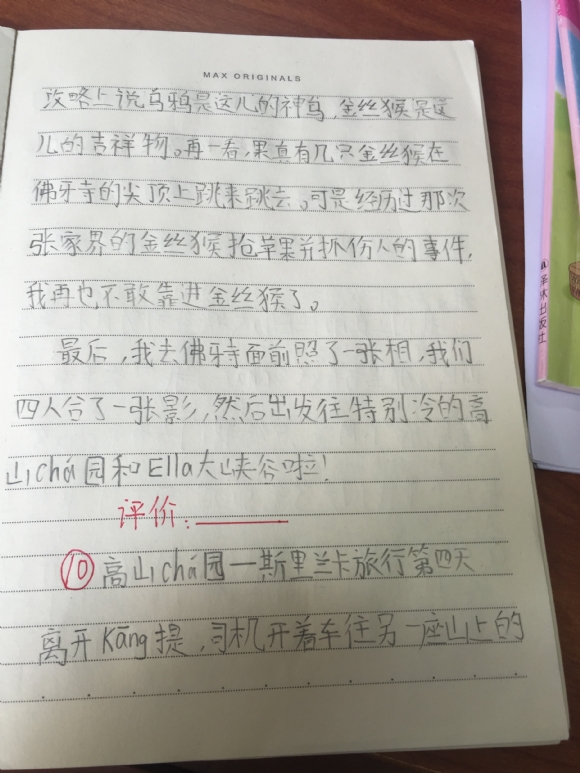 MAX ORIGINALS
攻略上说乌鸦是这儿的神鸟,金丝猴是这
儿的吉祥物。再一看,果真有几只金丝猴在
佛牙寺的尖顶上跳来跳去。可是经历过那次
张家界的金丝猴抢苹果并抓伤人的事件,
我再也不敢靠进金丝猴了。
最后,我去佛牙寺面前照了一张相,我们
四人合了一张影,然后出发往特别冷的高
山chá园和Ella大峡谷啦!
评价:
⑩高山chá园—斯里兰卡旅行第四天
离开Kāng提,司机开着车往另一座山上的
译林出版社